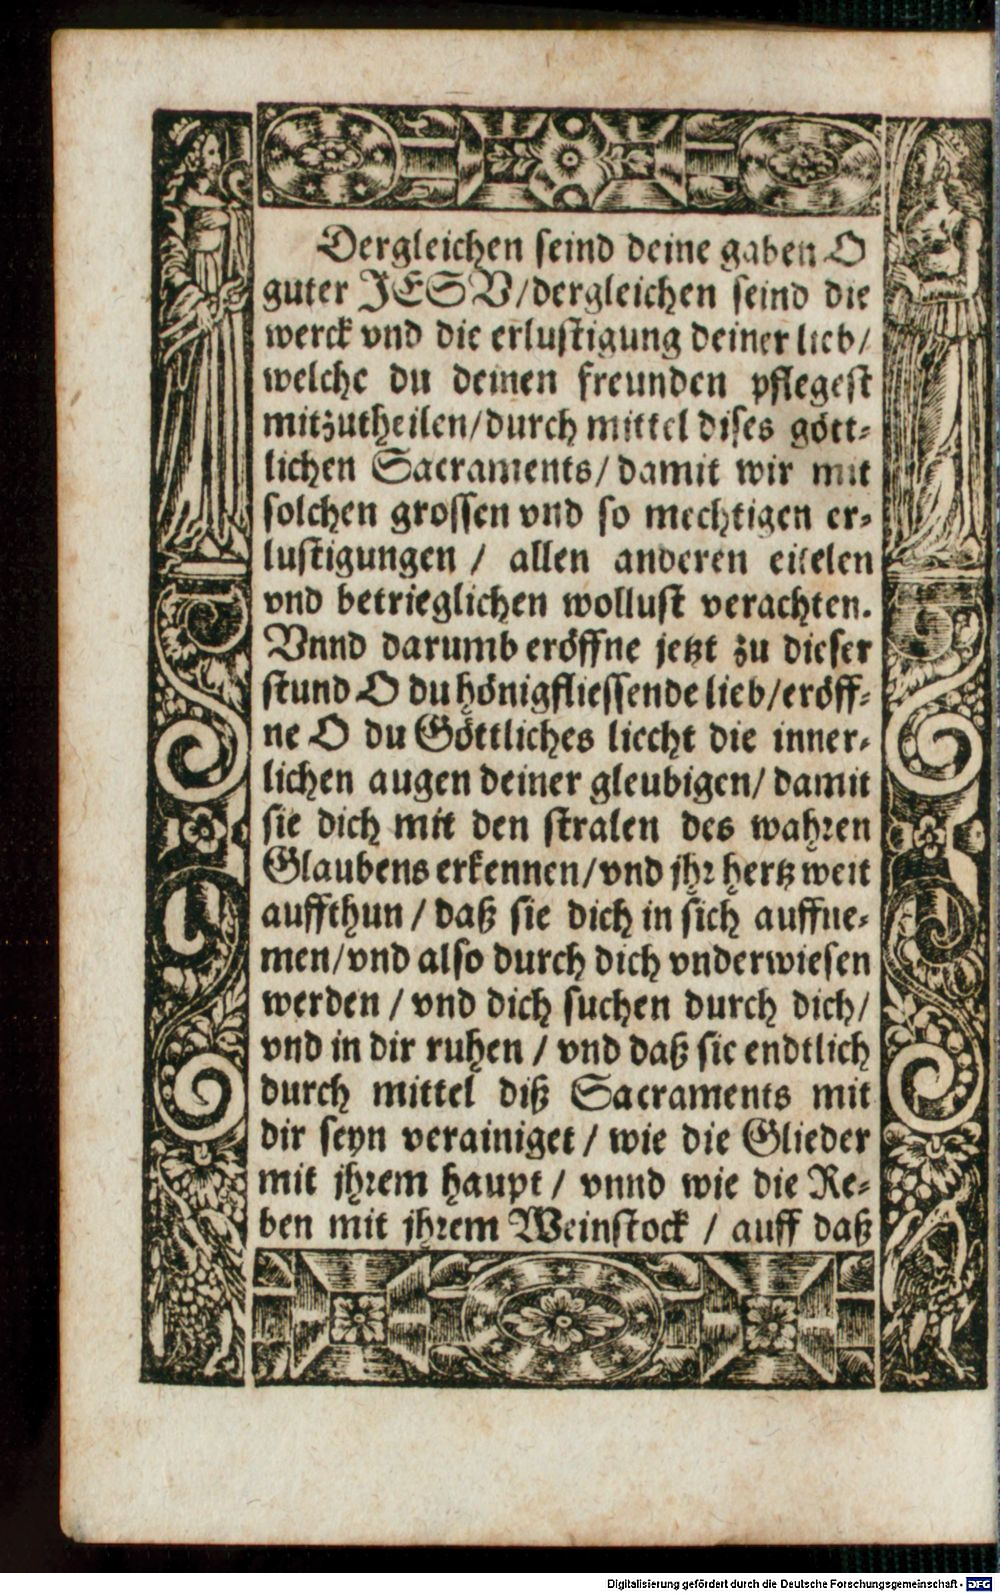 Dergleichen seind deine gaben O
guter JESV/dergleichen seind die
werck vnd die erlustigung deiner lieb/
welche du deinen freunden pflegest
mitzutheilen/durch mittel dises gött-
lichen Sacraments/damit wir mit
solchen grossen vnd so mechtigen er-
lustigungen / allen anderen eitelen
vnd betrieglichen wollust verachten.
Vnnd darumb eröffne jetzt zu dieser
stund O du hönigfliessende lieb/eröff-
ne O du Göttliches liecht die inner-
lichen augen deiner gleubigen/ damit
sie dich mit den stralen des wahren
Glaubens erkennen/vnd jhr hertz weit
auffthun / daß sie dich in sich auffne-
men/vnd also durch dich vnderwiesen
werden / vnd dich suchen durch dich/
vnd in dir ruhen / vnd daß sie endtlich
durch mittel diß Sacraments mit
dir seyn verainiget / wie die Glieder
mit jhrem haupt / vnnd wie die Re-
ben mit jhrem Weinstock / auff daß
Digitalisierung gefördert durch die Deutsche Forschungsgemeinschaft - DFG